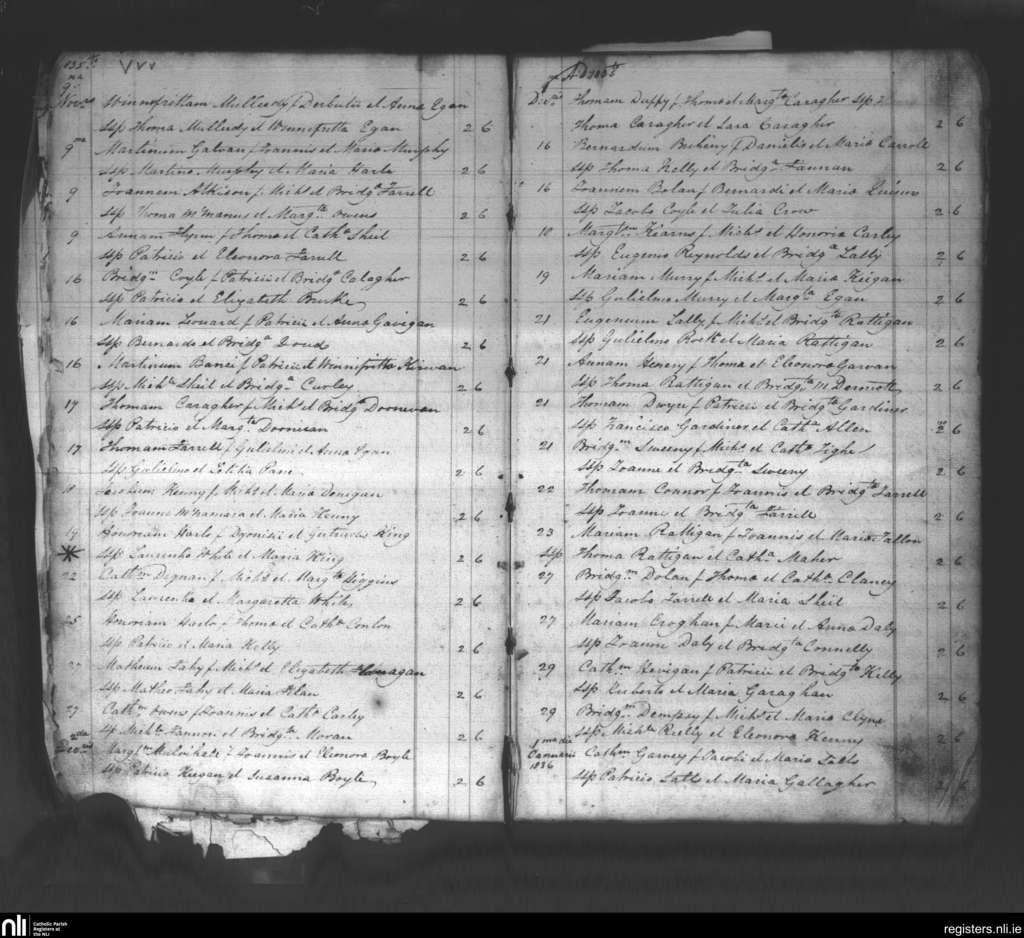 1835
9
Nov
Winnefrittam Mulledy f Derbutii et Anna Egan
Ssp Thoma Mulledy et Winnifretta Egan 2 6
9 Martinum Galvan f Joannis et Maria Murphy
Ssp Martino Murphy et Maria Harte 2 6
9 Joannem Atkison f Michs et Bridga Farrell
Ssp Thoma McManus et Margta Owens 2 6
9 Annam Flynn f Thoma et Catha Shiel
Ssp Patricio et Eleonora Farrell 2 6
16 Bridgm Coyle f Patricii et Bridga Calagher
Ssp Patricio et Elizabeth Burke 2 6
16 Mariam Leonard f Patricii et Anna Gavigan
Ssp Bernardo et Bridga 2 6
16 Martinum f Patricii et Winnifretta Kirwan
Ssp Michle Shiel et Bridga Curley 2 6
17 Thomam Caragher f Michs et Bridga Doonewan
Ssp Patricio et Margta Doonewan 2 6
17 Thomam Farrell f Gulielmi et Anna
Ssp Gulielmo et 2 6
Kenny f Michs et Maria Donigan
Ssp Joanne McNamara et Maria Kenny 2 6
Honoriam Harlo f Dyonisii et Gertrudes King
Ssp Laurentio White et Maria King 2 6
22 Cathm Degnan f Michs et Margta Higgins
Ssp Laurentio et Margaretta White 2 6
25 Honoriam Harlo f Thoma et Catha Conlon
Ssp Patricio et Maria Kelly 2 6
27 Matheum Fahy f Michs et Elizabeth
Ssp Matheo Fahy et Maria 2 6
27 Cathm Owens f Joannis et Catha Carley
Sp Michle Fannon et Bridgta Moran 2 6
Decris Margtm f Joannis et Eleonora Boyle
Ssp Patricio Keegan et Susanna Boyle 2 6
Dec Thomam Duffy f Thoma et Margta Caragher Ssp
Thoma Caragher et Sara Caragher 2 6
16 Bernardum Beheny f Danielis et Maria Carroll
Ssp Thoma Kelly et Bridga Fannan 2 6
16 Joannem Bolan f Bernardi et Maria
Ssp Jacobo Coyle et Julia Crow 2 6
18 Margtm Kearns f Michs et Honoria Carley
Ssp Eugenio Reynolds et Bridga Lally 2 6
19 Mariam Murry f Michs et Maria Keegan
Ssp Gulielmo Murry et Margta Egan 2 6
21 Eugenium Lally f Michs et Bridgta Rattigan
Ssp Gulielmo Rock et Maria Rattigan 2 6
21 Annam Henery f Thoma et Eleonora Garvan
Ssp Thoma Rattigan et Bridgta McDermott 2 6
21 Thomam Dwyre f Patricii et Bridgta Gardiner
Ssp Francisco Gardiner et Catha Allen 2 6
21 Bridgm Sweeny f Michs et Catha Tighe
Ssp Joanne et Bridgta Sweeny 2 6
22 Thomam Connor f Joannis et Bridgta Farrell
Ssp Joanne et Bridgta Farrell 2 6
23 Mariam Rattigan f Joannis et Maria Fallon
Ssp Thoma Rattigan et Catha Maher 2 6
27 Bridgm Dolan f Thoma et Catha Clancy
Ssp Jacobo Farrell et Maria Shiel 2 6
27 Mariam Croghan f Marci et Anna Daly
Ssp Joanne Daly et Bridgta Connelly 2 6
29 Cathm Kevigan f Patricii et Bridgta Kelly
Ssp et Maria Garaghan 2 6
29 Bridgm Dempsey f Michs et Maria Clyne
Ssp Michle Reilly et Eleonora Kenny 2 6
1ma die
Januarii
1836
Cathm Garvey f Jacobi et Maria Lally
Ssp Patricio Lally et Maria Gallagher 2 6
nli
Catholic Parish
Registers at
the NLI
registers.nli.ie